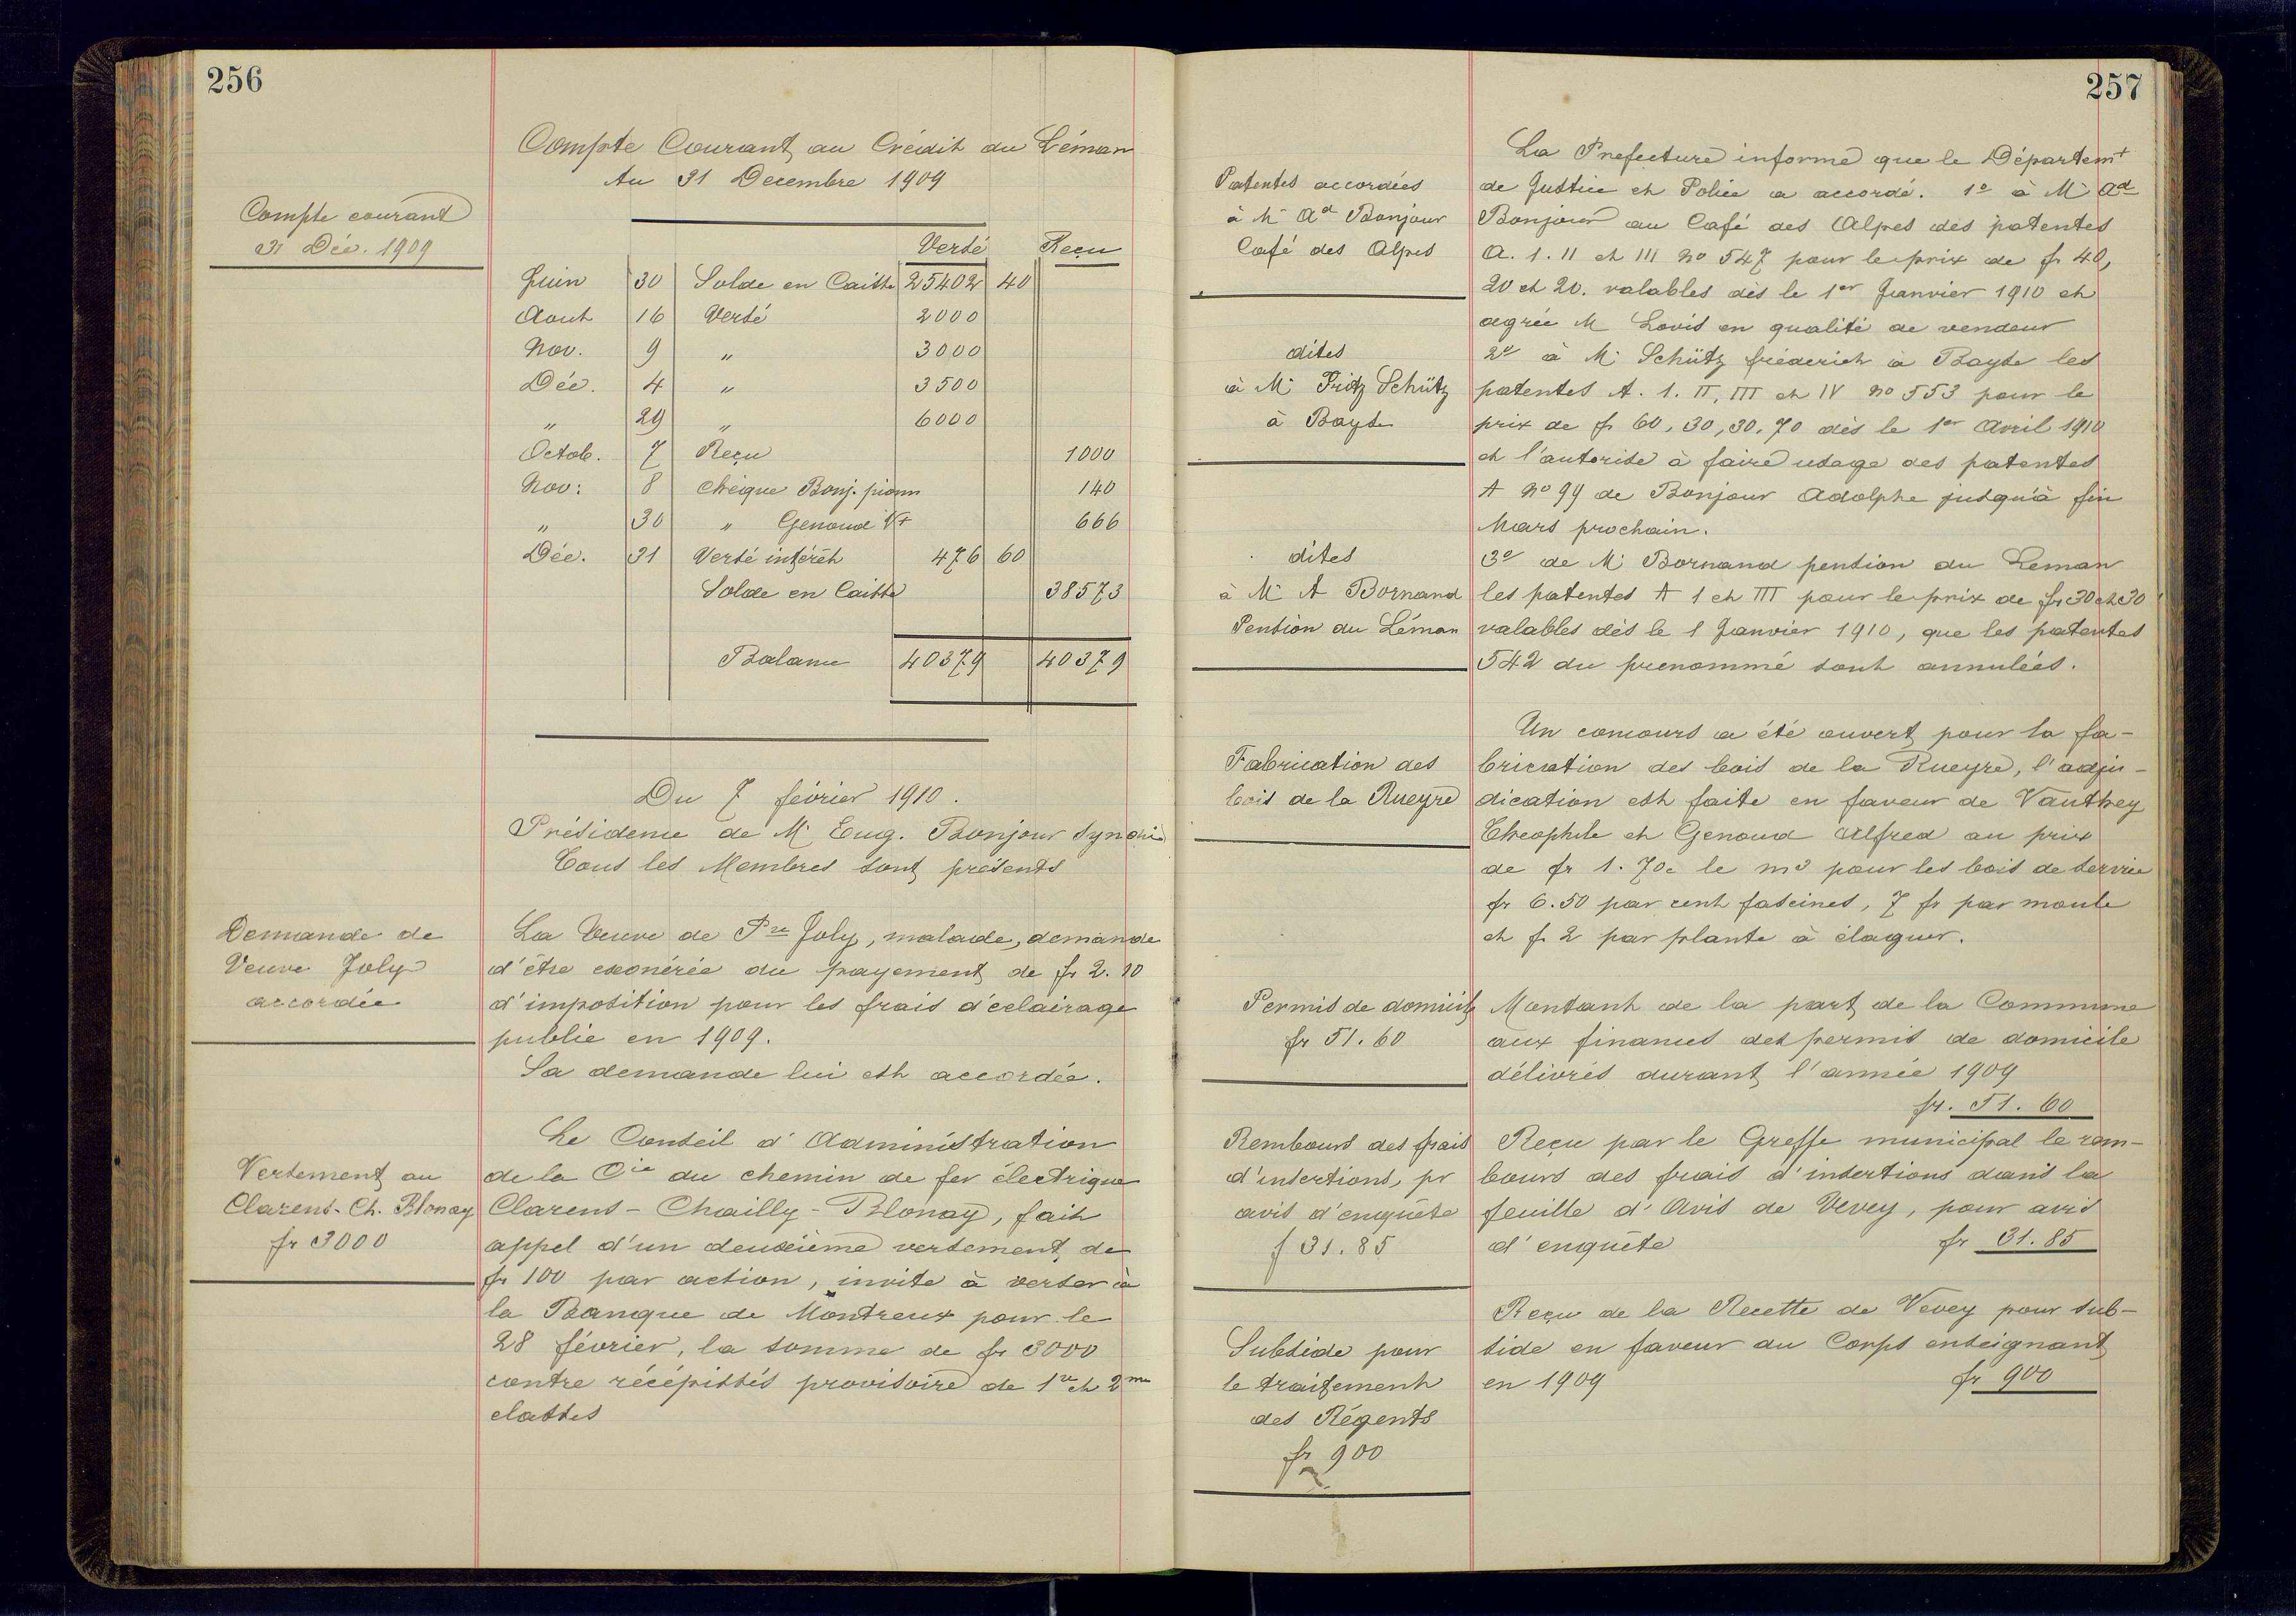 256
Compte Courant au Crédit du Léman
Au 31 Decembre 1909
Compte courant
31 Déc. 1909
Versé Reçu
Juin 30 Solde en Caisse 25402 40
Aout 16 Versé 2000
Nov. 9 " 3000
Déc. 4 " 3500
" 29 " 6000
Octob. 7 Reçu 1000
Nov: 8 chèque Bonj. 140
" 30 " Genoud 666
Déc. 31 Versé intérêt 476 60
Solde en Caisse 38573
Balance 40379 40379
Du 7 février 1910.
Présidence de M. Eug. Bonjour Syndic
Tous les Membres sont présents
Demande de
Veuve Joly
accordée
La Veuve de Pre Joly, malade, demande
d'être exonérée du payement de fr 2.10
d'imposition pour les frais d'éclairage
public en 1909.
Sa demande lui est accordée.
Versement au
Clarens-Ch. Blonay
fr 3000
Le Conseil d'Administration
de la Cie du chemin de fer électrique
Clarens - Chailly - Blonay, fait
appel d'un deuxième versement de
fr 100 par action, invite à verser à
la Banque de Montreux pour le
28 février, la somme de fr 3000
contre récépissés provisoire de 1re et 2me
classes
257
Patentes accordées
à Mr Ad Bonjour
Café des Alpes
La Prefecture informe que le Départemt
de Justice et Police a accordé. 1o à M. Ad
Bonjour au Café des Alpes des patentes
A. 1. II et III no 547 pour le prix de fr 40,
20 et 20. valables dès le 1er Janvier 1910 et
agrée M Lovis en qualité de vendeur
dites
à Mr Fritz Schütz
à Bayse
2o à M. Schütz fréderich à Bayse les
patentes A. 1. II, III et IV no 553 pour le
prix de fr 60, 30, 30, 70 dès le 1er Avril 1910
et l'autorise à faire usage des patentes
A no 99 de Bonjour Adolphe jusqu'à fin
Mars prochain.
dites
à Mr A Bornand
Pension du Léman
3o de M. Bornand pension du Leman
les patentes A 1 et III pour le prix de fr 30 et 30
valables dès le 1 Janvier 1910, que les patentes
542 du prenommé sont annulées.
Fabrication des
bois de la Rueyre
Un concours a été ouvert pour la fa-
brication des bois de la Rueyre, l'adju-
dication est faite en faveur de Vauthey
Théophile et Genoud Alfred au prix
de fr 1.70c le m3 pour les bois de service
fr 6.50 par cent fascines, 7 fr par moule
et fr 2 par plante à élaguer.
Permis de domicile
fr 51.60
Montant de la part de la Commune
aux finances des permis de domicile
délivrés durant l'année 1909
fr. 51. 60
Rembours des frais
d'insertions, pr
avis d'enquête
f 31.85
Reçu par le Greffe municipal le rem-
bours des frais d'insertions dans la
feuille d'Avis de Vevey, pour avis
d'enquête fr 31.85
Subside pour
le traitement
des Régents
fr 900
Reçu de la Recette de Vevey pour sub-
side en faveur du Corps enseignant
en 1909 fr 900